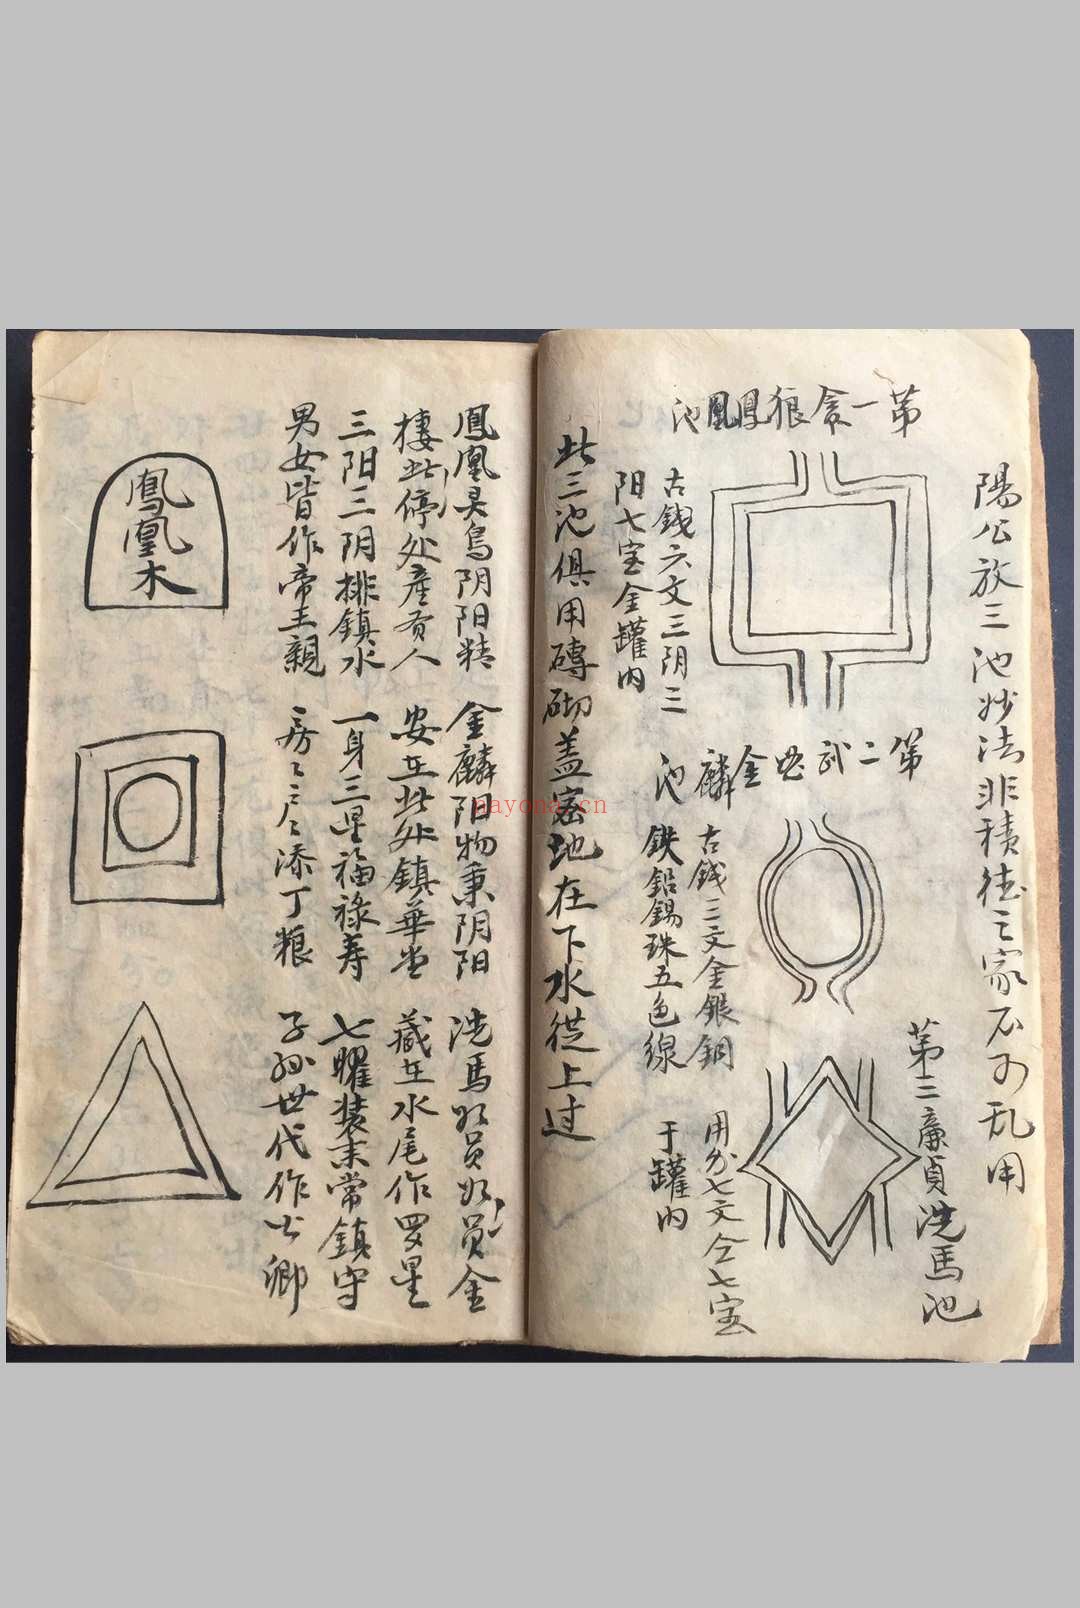 陽公放三池妙法非積德之家不可乱用
第一貪狼鳳凰池
古錢六文三阴三
阳七宝金罐内
第二武曲金麟池
古錢三文金銀銅
鉄鉛錫珠五色線
第三廉貞洗馬池
用分七文仝七宝
于罐内
此三池俱用磚砌盖密地在下水從上过
鳳凰灵鳥阴阳精
棲此停处產貴人
三阳三阴排鎮水
男女皆作帝王親
金麟阳物秉阴阳
安在此处鎮華堂
一身三星福祿寿
房〻户〻添丁粮
洗馬 金
藏在水尾作罗星
七曜装来常鎮守
子孙世代作公卿
鳳凰木
nayona.cn